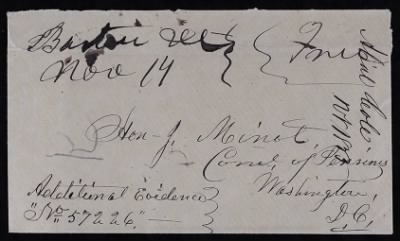 Barton Vt
Nov 14
Free
Hon. J. Minot,
Com. of Pensions
Washington,
D.C.
Additional Evidence
"No 57226."